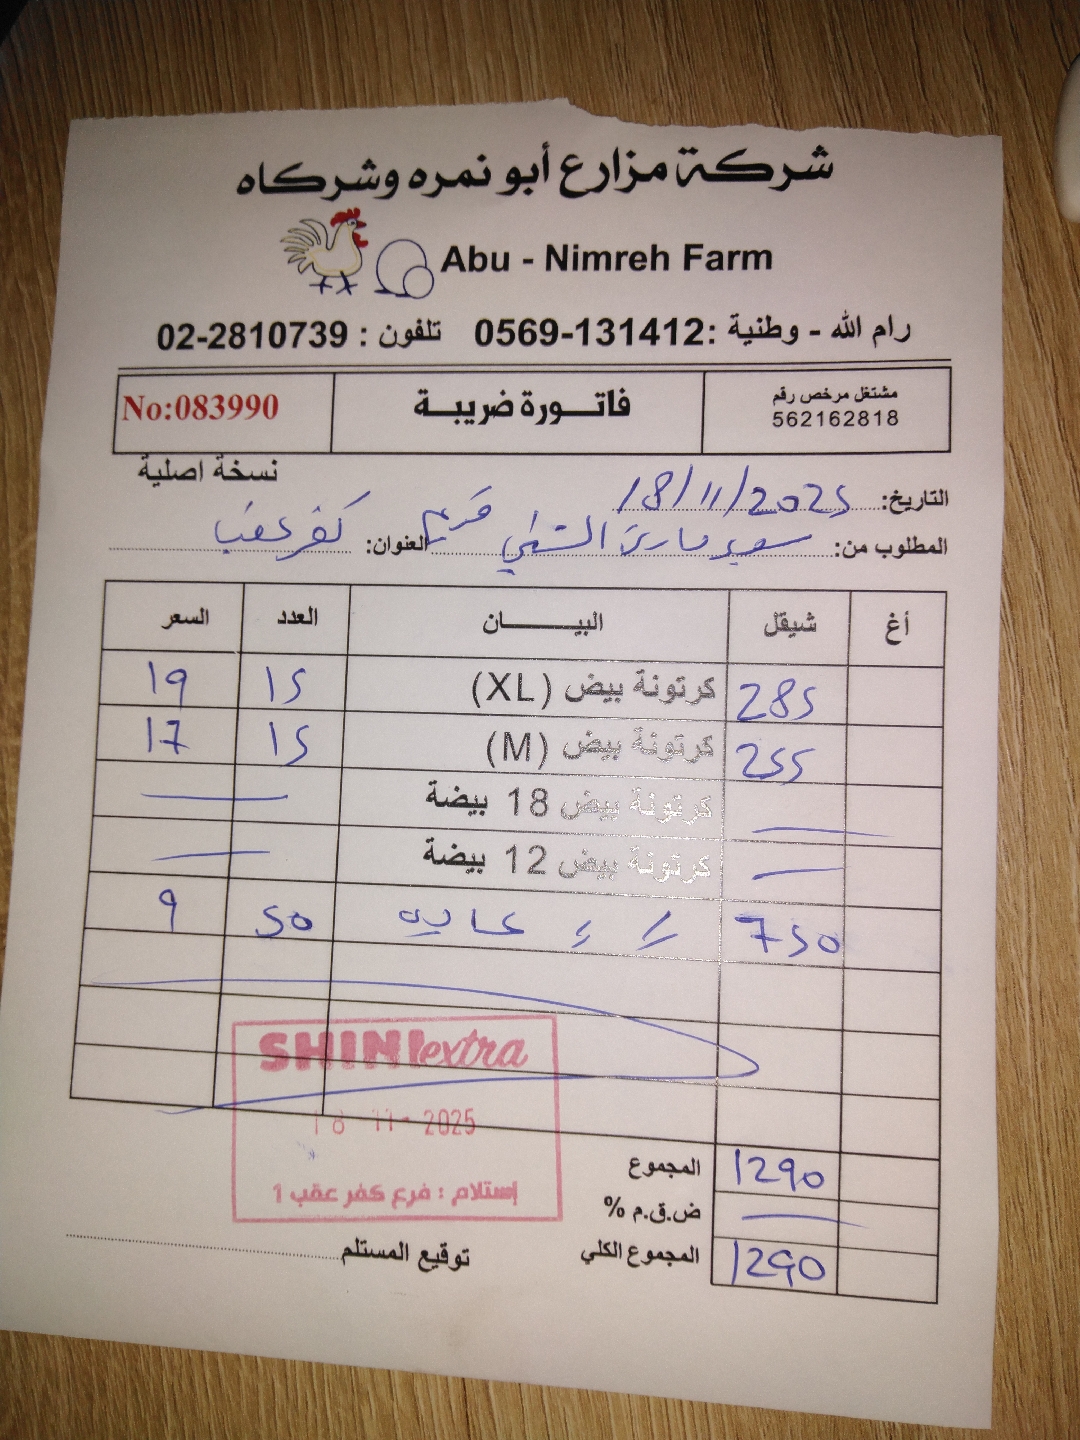 شركة مزارع أبو نمره وشركاه
Abu - Nimreh Farm
رام الله - وطنية :0569-131412 تلفون : 02-2810739
مشتغل مرخص رقم
562162818
فاتـــورة ضريبـــة
No:083990
نسخة اصلية
التاريخ: 18/11/2025
المطلوب من: سوبر ماركت الشيني فرع العنوان: كفر عقب
أغ شيقل البيـــــــان العدد السعر
285 كرتونة بيض (XL) 15 19
255 كرتونة بيض (M) 15 17
كرتونة بيض 18 بيضة
كرتونة بيض 12 بيضة
750 50 9
SHINI extra
18 -11- 2025
إستلام : فرع كفر عقب 1
المجموع 1290
ض.ق.م %
المجموع الكلي 1290
توقيع المستلم